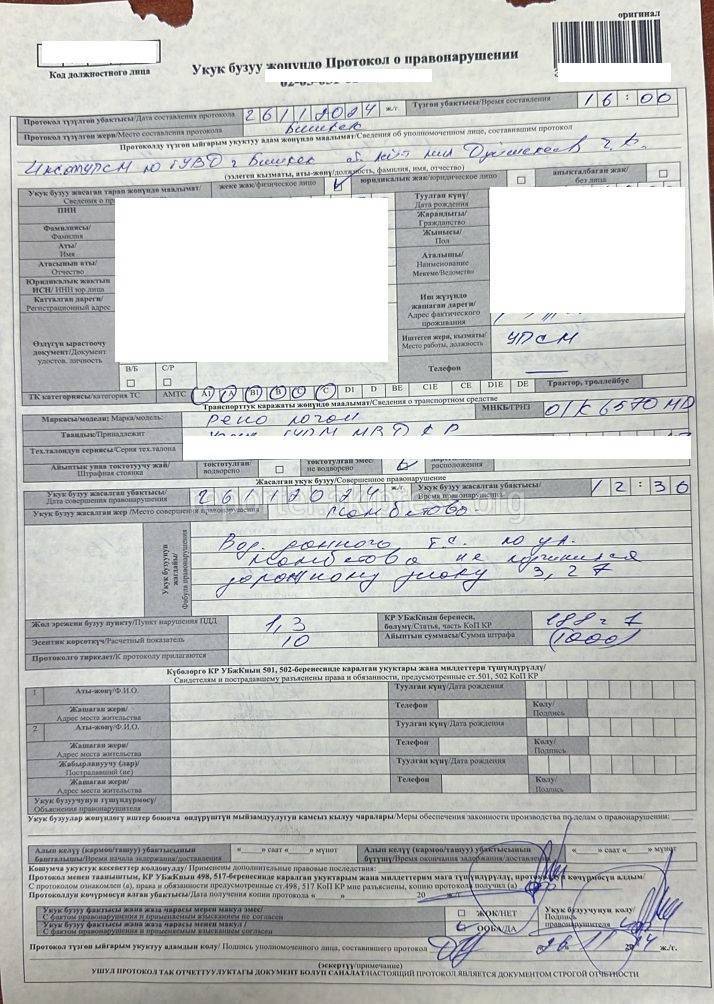 оригинал
Код должностного лица
Укук бузуу жөнүндө Протокол о правонарушении
Протокол түзүлгөн убактысы/Дата составления протокола 26 11 2024 ж/г. Түзгөн убактысы/Время составления 16:00
Протокол түзүлгөн жери/Место составления протокола Бишкек
Протоколду түзгөн ыйгарым укуктуу адам жөнүндө маалымат/Сведения об уполномоченном лице, составившим протокол
по ГУВД г Бишкек
(ээлеген кызматы, аты-жөнү/должность, фамилия, имя, отчество)
Укук бузуу жасаган тарап жөнүндө маалымат/ жеке жак/физическое лицо юридикалык жак/юридическое лицо аныкталбаган жак/
Сведения о без лица
ПИН Туулган күнү/
Дата рождения
Фамилиясы/ Жарандыгы/
Фамилия Гражданство
Аты/ Жынысы/
Имя Пол
Атасынын аты/ Аталышы/
Отчество Наименование
Юридикалык жактын Мекеме/Ведомство
ИСН/ ИНН юр.лица
Катталган дареги/ Иш жүзүндө
Регистрационный адрес жашаган дареги/
Адрес фактического
проживания
Өздүгүн ырастоочу Иштеген жери, кызматы/ УПСМ
документ/Документ Место работы, должность
удостов. личность Телефон —
В/Б С/Р
ТК категориясы/категория ТС АМТС А1 А В1 В С1 С D1 D BE C1E CE D1E DE Трактор, троллейбус
Транспорттук каражаты жөнүндө маалымат/Сведения о транспортном средстве
Маркасы/модели: Марка/модель: Рено логан МНКБ/ГРНЗ 01К6570МВ
Таандык/Принадлежит МВД КР
Тех.талондун сериясы/Серия тех.талона
Айыптык унаа токтотуучу жай/ токтотулган/ токтотулган эмес/
Штрафная стоянка водворено не водворено расположения
Жасалган укук бузуу/Совершенное правонарушение
Укук бузуу жасалган убактысы/ 26 11 2024 ж/г. Укук бузуу жасалган убактысы/ 12:30
Дата совершения правонарушения Время правонарушения
Укук бузуу жасалган жер /Место совершения правонарушения Мамбетова
Укук бузуунун жагдайы/
Фабула правонарушения
Вод. данного т.с. по ул.
Мамбетова не подчинился
дорожному знаку 3,27
Жол эрежени бузуу пункту/Пункт нарушения ПДД 1,3 КР УБжКнын беренеси, 188 ч 7
бөлүмү/Статья, часть КоП КР
Эсептик көрсөткүч/Расчетный показатель 10 Айыптын суммасы/Сумма штрафа (1000)
Протоколго тиркелет/К протоколу прилагаются
Күбөлөргө КР УБжКнын 501, 502-беренесинде каралган укуктары жана милдеттери түшүндүрүлдү/
Свидетелям и пострадавшему разъяснены права и обязанности, предусмотренные ст.501, 502 КоП КР
1 Аты-жөнү/Ф.И.О. Туулган күнү/Дата рождения
Жашаган жери/ Телефон Колу/
Адрес места жительства Подпись
2 Аты-жөнү/Ф.И.О. Туулган күнү/Дата рождения
Жашаган жери/ Телефон Колу/
Адрес места жительства Подпись
Жабырлануучу (лар)/ Туулган күнү/Дата рождения
Пострадавший (ие)
Жашаган жери/ Телефон Колу/
Адрес места жительства Подпись
Укук бузуучунун түшүндүрмөсү/
Объяснения правонарушителя
Укук бузуулар жөнүндөгү иштер боюнча өндүрүштүн мыйзамдуулугун камсыз кылуу чаралары/Меры обеспечения законности производства по делам о правонарушении:
Алып келүү (кармоо/ташуу) убактысынын «___» саат «___» мүнөт Алып келүү (кармоо/ташуу) убактысынын «___» саат «___» мүнөт
башталышы/Время начала задержания/доставления бүтүшү/Время окончания задержания/доставления
Кошумча укуктук кесепеттер колдонулду/ Применены дополнительные правовые последствия:
Протокол менен тааныштым, КР УБжКнын 498, 517-беренесинде каралган укуктарым жана милдеттерим мага түшүндүрүлдү, протоколдун көчүрмөсүн алдым/
С протоколом ознакомлен (а), права и обязанности предусмотренные ст.498, 517 КоП КР мне разъяснены, копию протокола получил (а)
Протоколдун көчүрмөсүн алган убактысы/Дата получения копии протокола «___» 20
Укук бузуу фактысы жана жаза чарасы менен макул эмес/ ЖОК/НЕТ Укук бузуучунун колу/
С фактом правонарушения и применяемым взысканием не согласен Подпись
Укук бузуу фактысы жана жаза чарасы менен макул / ООБА/ДА правонарушителя
С фактом правонарушения и применяемым взысканием согласен
Протокол түзгөн ыйгарым укуктуу адамдын колу/ Подпись уполномоченного лица, составившего протокол 26. 11 2024 ж/г.
(эскертүү/примечание)
УШУЛ ПРОТОКОЛ ТАК ОТЧЕТТУУЛУКТАГЫ ДОКУМЕНТ БОЛУП САНАЛАТ/НАСТОЯЩИЙ ПРОТОКОЛ ЯВЛЯЕТСЯ ДОКУМЕНТОМ СТРОГОЙ ОТЧЕТНОСТИ